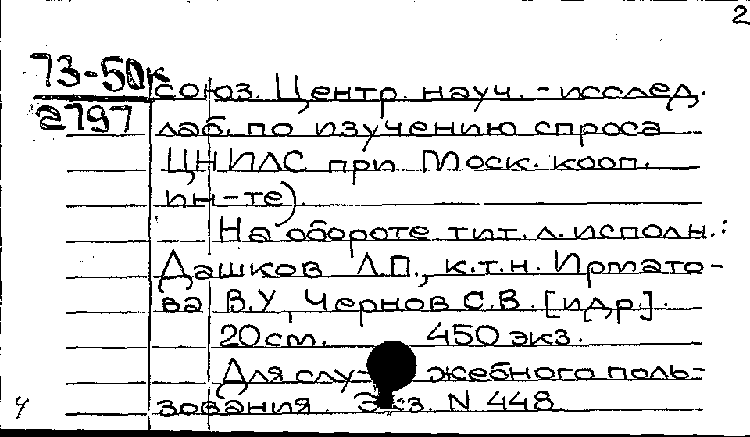 2
73-50к
2797
союз. Центр. науч. - исслед.
лаб. по изучению спроса
ЦНИЛС при Моск. кооп.
ин-те).
На обороте тит. л. исполн.:
Дашков Л.П., к.т.н. Ирмато-
ва В.У, Чернов С.В. [и др].
20 см. 450 экз.
Для слу- жебного поль-
зования. Экз. N 448